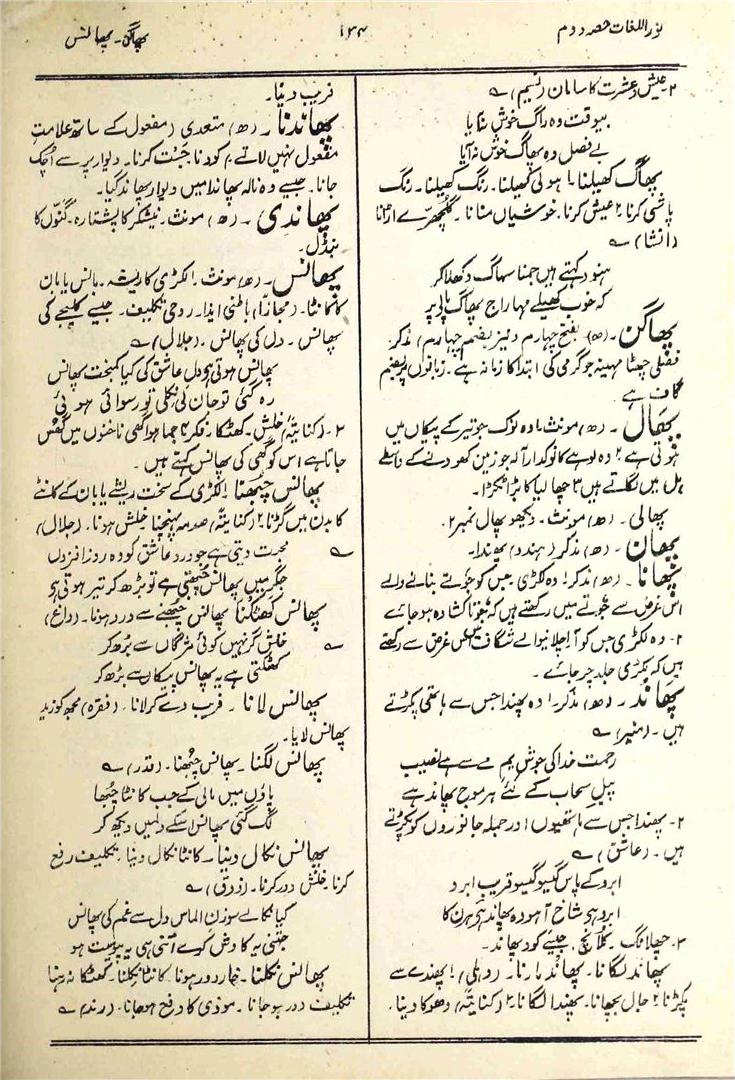 نور اللغات حصہ دوم
۱۳۴
پھاگن۔ پھانس
۲۔ عیش و عشرت کا سامان (نسیم) ؎
بیوقت وہ راگ خوش نہ آیا
بے فصل وہ پھاگ خوش نہ آیا
پھاگ کھیلنا۔ ۱ ہولی کھیلنا۔ رنگ کھیلنا۔ رنگ
پاشی کرنا ۲ عیش کرنا۔ خوشیاں منانا۔ گلچھرّے اڑانا
(انشا) ؎
ہنود کہتے ہیں جمنا سہاگ دکھلا کر
کہ خوب کھیلے مہاراج پھاگ پر
پھاگن۔ (ھ) بفتح چہارم و نیز بضم چہارم) مذکر۔
فصلی چھٹا مہینہ جو گرمی کی ابتدا کا زمانہ ہے۔ زبانوں پر بضم
گاف ہے
پھال۔ (ھ) مونث ۱۔ وہ نوک جو تیر کے پیکاں میں
ہوتی ہے ۲ وہ لوہے کا نوکدار آلہ جو زمین کھودنے کے واسطے
ہل میں لگاتے ہیں ۳ چھالیا کا بڑا ٹکڑا۔
پھالی۔ (ھ) مونث۔ دیکھو پھال نمبر ۲۔
پھان۔ (ھ) مذکر (ہندو) پھندا۔
پھانا۔ (ھ) مذکر ۱۔ وہ لکڑی جس کو جوتے بنانے والے
اس غرض سے جوتے میں رکھتے ہیں کہ جوتا کشادہ ہو جائے
۲۔ وہ لکڑی جس کو آرا چلانیوالے شگاف میں اس غرض سے رکھتے
ہیں کہ لکڑی جلد چر جائے۔
پھاند۔ (ھ) مذکر ۱۔ وہ پھندا جس سے ہاتھی پکڑتے
ہیں۔ (منیر) ؎
رحمت خدا کی جوش یم مے سے ہے نصیب
پیل سحاب کے لئے ہر موج پھاند ہے
۲۔ پھندا جس سے ہاتھیوں اور جملہ جانوروں کو پکڑتے
ہیں۔ (عاشق) ؎
ابرو کے پاس گیسو گیسو قریب ابرو
ابرو ہو شاخ آہو وہ پھاند ہو ہرن کا
۳۔ چھلانگ۔ کلانچ۔ جیسے کود پھاند۔
پھاند لگانا۔ پھاند مارنا۔ (دہلی) ۱ پھندے سے
پکڑنا ۲ جال بچھانا۔ پھندا لگانا۔ ۲ (کنایتہً) دھوکا دینا۔
فریب دینا۔
پھاندنا۔ (ھ) متعدی (مفعول کے ساتھ علامت
مفعول نہیں لاتے) کودنا۔ جَست کرنا۔ دیوار پر سے اُچک
جانا۔ جیسے وہ نالہ پھاندا میں دیوار پھاند گیا۔
پھاندی۔ (ھ) مونث۔ نیشکر کا پشتارہ۔ گنّوں کا
بنڈل۔
پھانس۔ (ھ) مونث۔ ۱ لکڑی کا ریشہ۔ بانس یا بان
کا کانٹا۔ (مجازاً) باطنی ایذا۔ روحی تکلیف۔ جیسے کلیجے کی
پھانس۔ دل کی پھانس۔ (جلال) ؎
پھانس ہوتی ہے دل عاشق کی کیا کمبخت پھانس
رہ گئی تو جان لی نکلی تو رسوائی ہوئی
۲۔ (کنایتہً) خلش۔ کھٹکا۔ فکر ۳ جما ہوا گھی ناخنوں میں گھُس
جاتا ہے اس کو گھی کی پھانس کہتے ہیں۔
پھانس چبھنا۔ ۱ لکڑی کے سخت ریشے یا بان کے کانٹے
کا بدن میں گڑنا ۲ (کنایتہً) صدمہ پہنچنا۔ خلش ہونا۔ (جلال)
؎ محبت دیتی ہے جو درد عاشق کو وہ روز افزوں
جگر میں پھانس چُبھتی ہے تو بڑھ کر تیر ہوتی ہے
پھانس کھٹکنا۔ پھانس چبھنے سے درد ہونا۔ (داغ)
؎ خلش گر نہیں کوئی مژگاں سے بڑھ کر
کھٹکتی ہے یہ پھانس پیکاں سے بڑھ کر
پھانس لانا۔ فریب دے کر لانا۔ (فقرہ) مجھ کو زید
پھانس لایا۔
پھانس لگنا۔ پھانس چبھنا۔ (قدر) ؎
پاؤں میں مالی کے جب کانٹا چُبھا
لگ گئی پھانس اسکے دلمیں دیکھ کر
پھانس نکال دینا۔ کانٹا نکال دینا۔ تکلیف رفع
کرنا۔ خلش دور کرنا۔ (ذوق) ؎
کیا نکالے سوزن الماس دل سے غم کی پھانس
جتنی یہ کاوش کرے اتنی ہی یہ پیوست ہو
پھانس نکلنا۔ خار دور ہونا۔ کانٹا نکلنا۔ کھٹکا نہ رہنا
تکلیف دور ہو جانا۔ موذی کا دفع ہو جانا۔ (رند) ؎